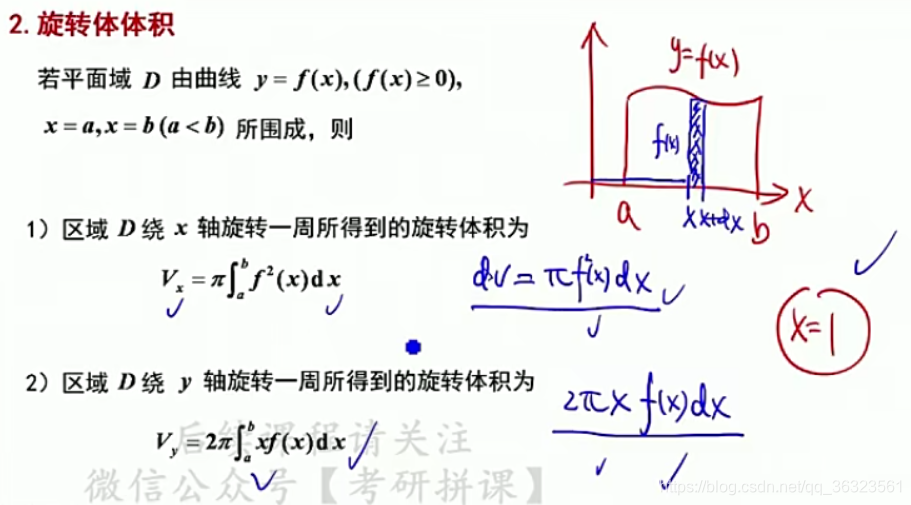 2. 旋转体体积
若平面域 D 由曲线 y = f(x), (f(x) ≥ 0),
x = a, x = b (a < b) 所围成，则
y=f(x)
f(x)
a x x+dx b x
1）区域 D 绕 x 轴旋转一周所得到的旋转体积为
V_x = π∫_a^b f²(x)dx
dv = πf²(x)dx
x=1
2）区域 D 绕 y 轴旋转一周所得到的旋转体积为
2πx f(x)dx
V_y = 2π∫_a^b xf(x)dx
后续课程请关注
微信公众号【考研拼课】
https://blog.csdn.net/qq_36323561